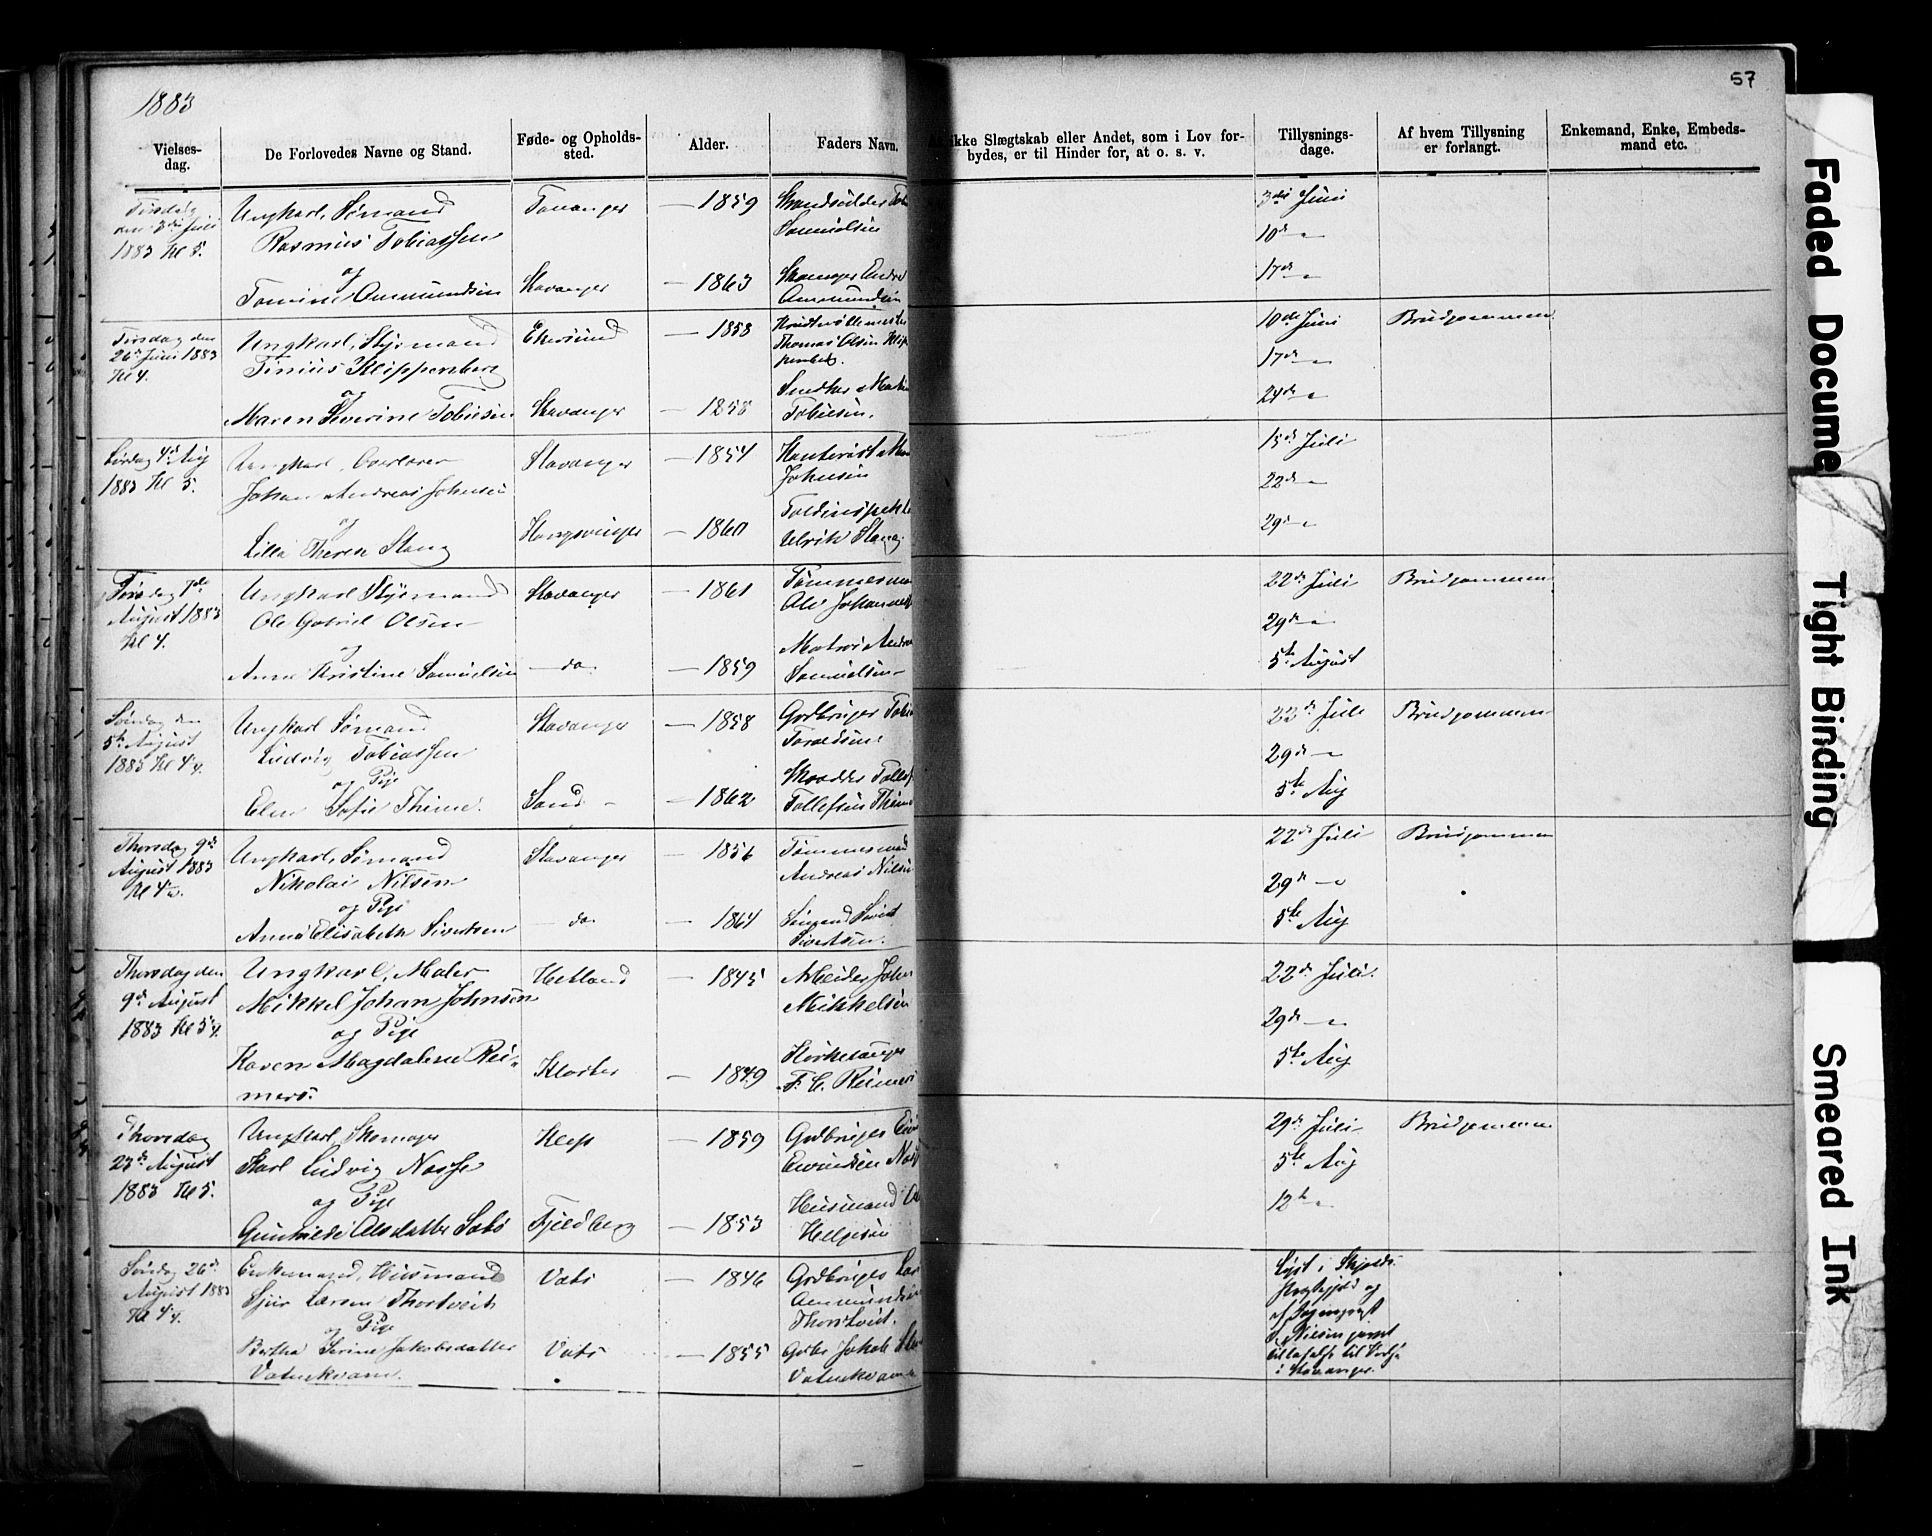 1883
57
Vielses-
dag.
De Forlovedes Navne og Stand.
Føde- og Opholds-
sted.
Alder.
Faders Navn.
ikke Slægtskab eller Andet, som i Lov for-
bydes, er til Hinder for, at o. s. v.
Tillysnings-
dage.
Af hvem Tillysning
er forlangt.
Enkemand, Enke, Embeds-
mand etc.
Tirsdag
den 3die Juli
1883 Kl 5.
Ungkarl, Sømand
Rasmus Tobiassen
og
Tomine Ommundsen
Tananger
Stavanger
— 1859
— 1863
Samuelsen
Skomager
Ommundsen
3die Juni
10de —"—
17de —"—
Tirsdag den
26de Juni 1883
Kl 4.
Ungkarl, Styrmand
Tinius Klippenberg
og
Maren Severine Tobiesen
Ekersund
Stavanger
— 1858
— 1858
Thomas Olsen
Snedker Martin
Tobiesen.
10de Juni
17de —"—
24de —"—
Brudgommen
Lørdag 4de Aug
1883 Kl 5.
Ungkarl,
Johan Andreas Johnsen
og
Lilla Therese Stang
Stavanger
Kongsvinger
— 1854
— 1860
Johnsen
Ulrik Stang.
15de Juli
22de —"—
29de —"—
Tirsdag 7de
August 1883
Kl 4.
Ungkarl Styrmand
Ole Gabriel Olsen
og
Anne Kristine Samuelsen
Stavanger
— do —
— 1861
— 1859
Tømmerman
Ole
Matros
Samuelsen
22de Juli
29de —"—
5te August
Brudgommen
Søndag den
5te August
1883 Kl 4¼.
Ungkarl Sømand
Ludvig Tobiassen
og Pige
Elen Sofie Thime.
Stavanger
Sand —
— 1858
— 1862
Grdbruger
Skrædder
22de Juli
29de —"—
5te Aug
Brudgommen
Thorsdag 9de
August 1883
Kl 4½.
Ungkarl, Sømand
Nikolai Nilsen
og Pige
Anna Elisabeth Sivertsen
Stavanger
— do —
— 1856
— 1864
Tømmermand
Andreas Nilsen
Sivertsen.
22de Juli
29de —"—
5te Aug
Brudgommen
Thorsdag den
9de August
1883 Kl 5¼.
Ungkarl, Maler
Mikkel Johan Johnsen
og Pige
Karen Magdalene Rei-
mers.
Hetland
Kloster
— 1845
— 1849
Arbeider John
Mikkelsen
Kirkesanger
F. C. Reimers
22de Juli.
29de —"—
5te Aug
Thorsdag
23de August
1883 Kl 5.
Ungkarl, Skomager
Karl Ludvig Næsse
og Pige
Gunhilde Olsdatter Sæbø
Klep
Fjeldberg
— 1859
— 1853
Grdbruger
Husmand
Helgesen
29de Juli
5te Aug
12te —"—
Brudgommen
Søndag 26de
August 1883
Kl 4¼.
Enkemand, Husmand
Sjur Larsen Thortveit
og Pige
Bertha Serine Jakobsdatter
Vatnekvam.
Vats
Vats
— 1846
— 1855
Grdbruger Lar
Ommundsen
Thortveit.
Grbr Jakob
Vatnekvam
Lyst i Skjolds
Prestegjeld og
af Sogneprest
Nielsen
i Stavanger.
Faded Docume
Tight Binding
Smeared Ink